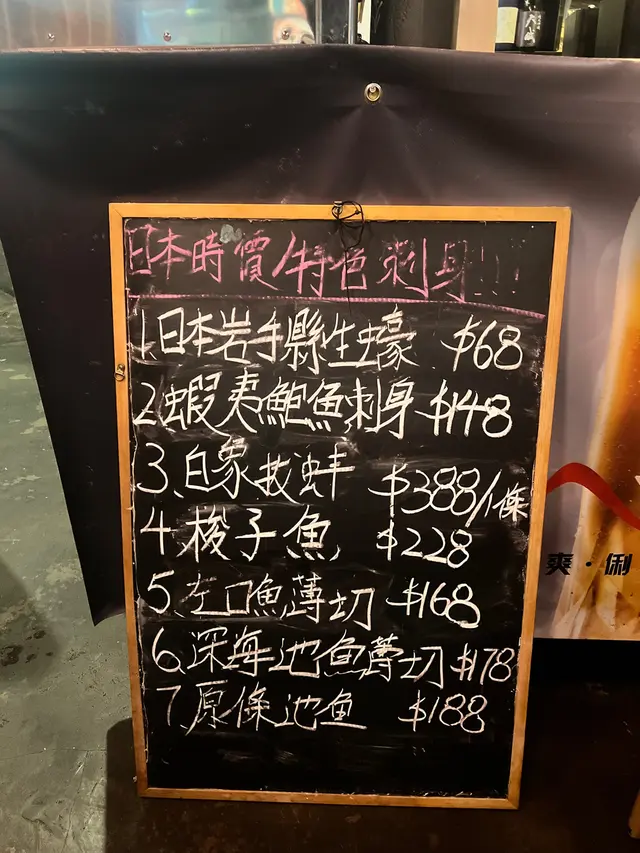 日本時價/特色刺身!!!
1.日本岩手縣生蠔 $68
2.蝦夷鮑魚刺身 $148
3.白象拔蚌 $388/條
4.梭子魚 $228
5.左口魚薄切 $168
6.深海池魚薄切 $178
7.原條池魚 $188
爽·俐